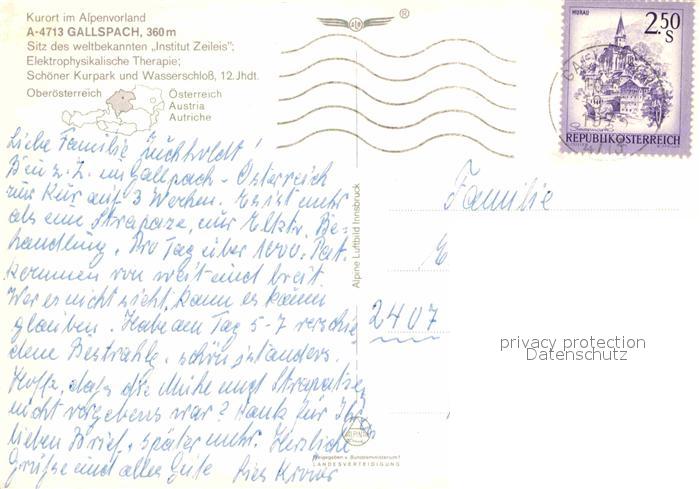 Kurort im Alpenvorland
A-4713 GALLSPACH, 360 m
Sitz des weltbekannten „Institut Zeileis":
Elektrophysikalische Therapie;
Schöner Kurpark und Wasserschloß, 12. Jhdt.
Oberösterreich
Österreich
Austria
Autriche
®
MURAU
2.50
S
REPUBLIK ÖSTERREICH
Liebe Familie
Bin z. Z. in Gallpach - Österreich
zur Kur auf 3 Wochen. Es ist mehr
als eine Strapaze, nur Elktr. Be-
handlung. Pro Tag über 1000 Pat.
kommen von weit und breit.
Wer es nicht sieht, kann es kaum
glauben. Habe am Tag 5-7 verschie
dene Bestrahlg. schön
Hoffe, daß die Mühe und Strapatze
nicht vergebens war? Dank für Ihr
lieben Brief, später mehr. Herzliche
Grüße und alles Gute
Alpine Luftbild Innsbruck
Familie
E
2407
privacy protection
Datenschutz
ALPINE
Freigegeben v. Bundesministerium f.
LANDESVERTEIDIGUNG